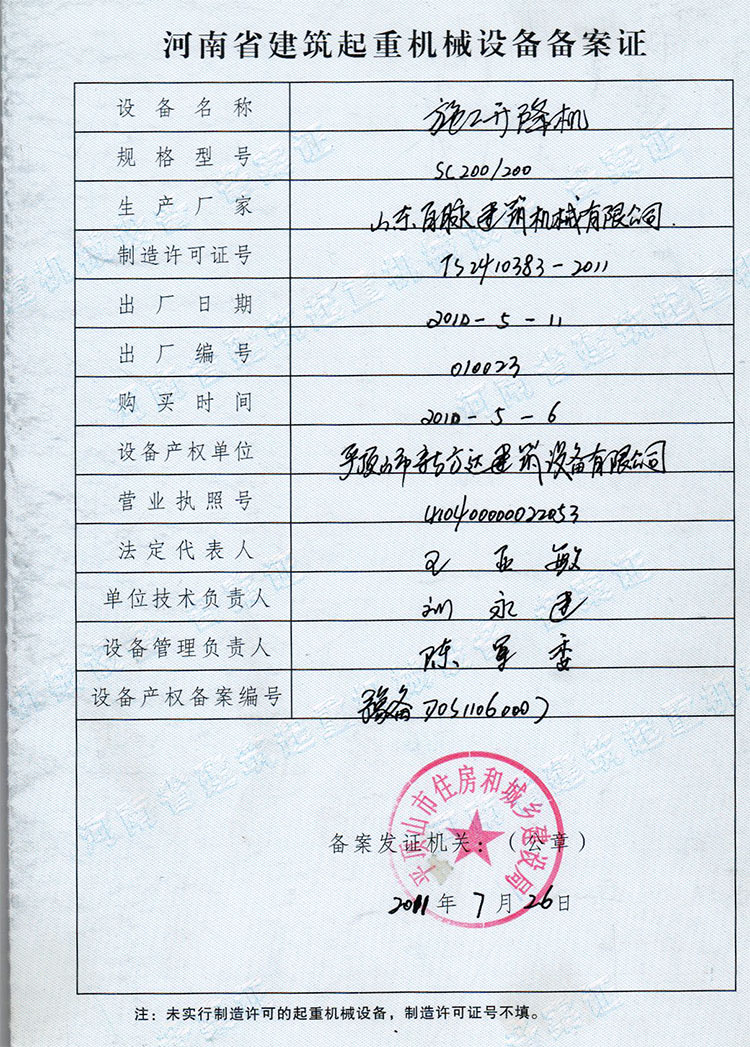 河南省建筑起重机械设备备案证
设备名称 施工升降机
规格型号 SC200/200
生产厂家 山东百脉建筑机械有限公司.
制造许可证号 TS2410383-2011
出厂日期 2010-5-11
出厂编号 010023
购买时间 2010-5-6
设备产权单位 平顶山市 方达建筑设备有限公司
营业执照号 410400000022053
法定代表人 王 敏
单位技术负责人 刘永建
设备管理负责人 陈军委
设备产权备案编号 豫备
平顶山市住房和城乡建设局
备案发证机关:(公章)
2011年7月26日
注:未实行制造许可的起重机械设备,制造许可证号不填。
河南省建筑起重机械设备备案证